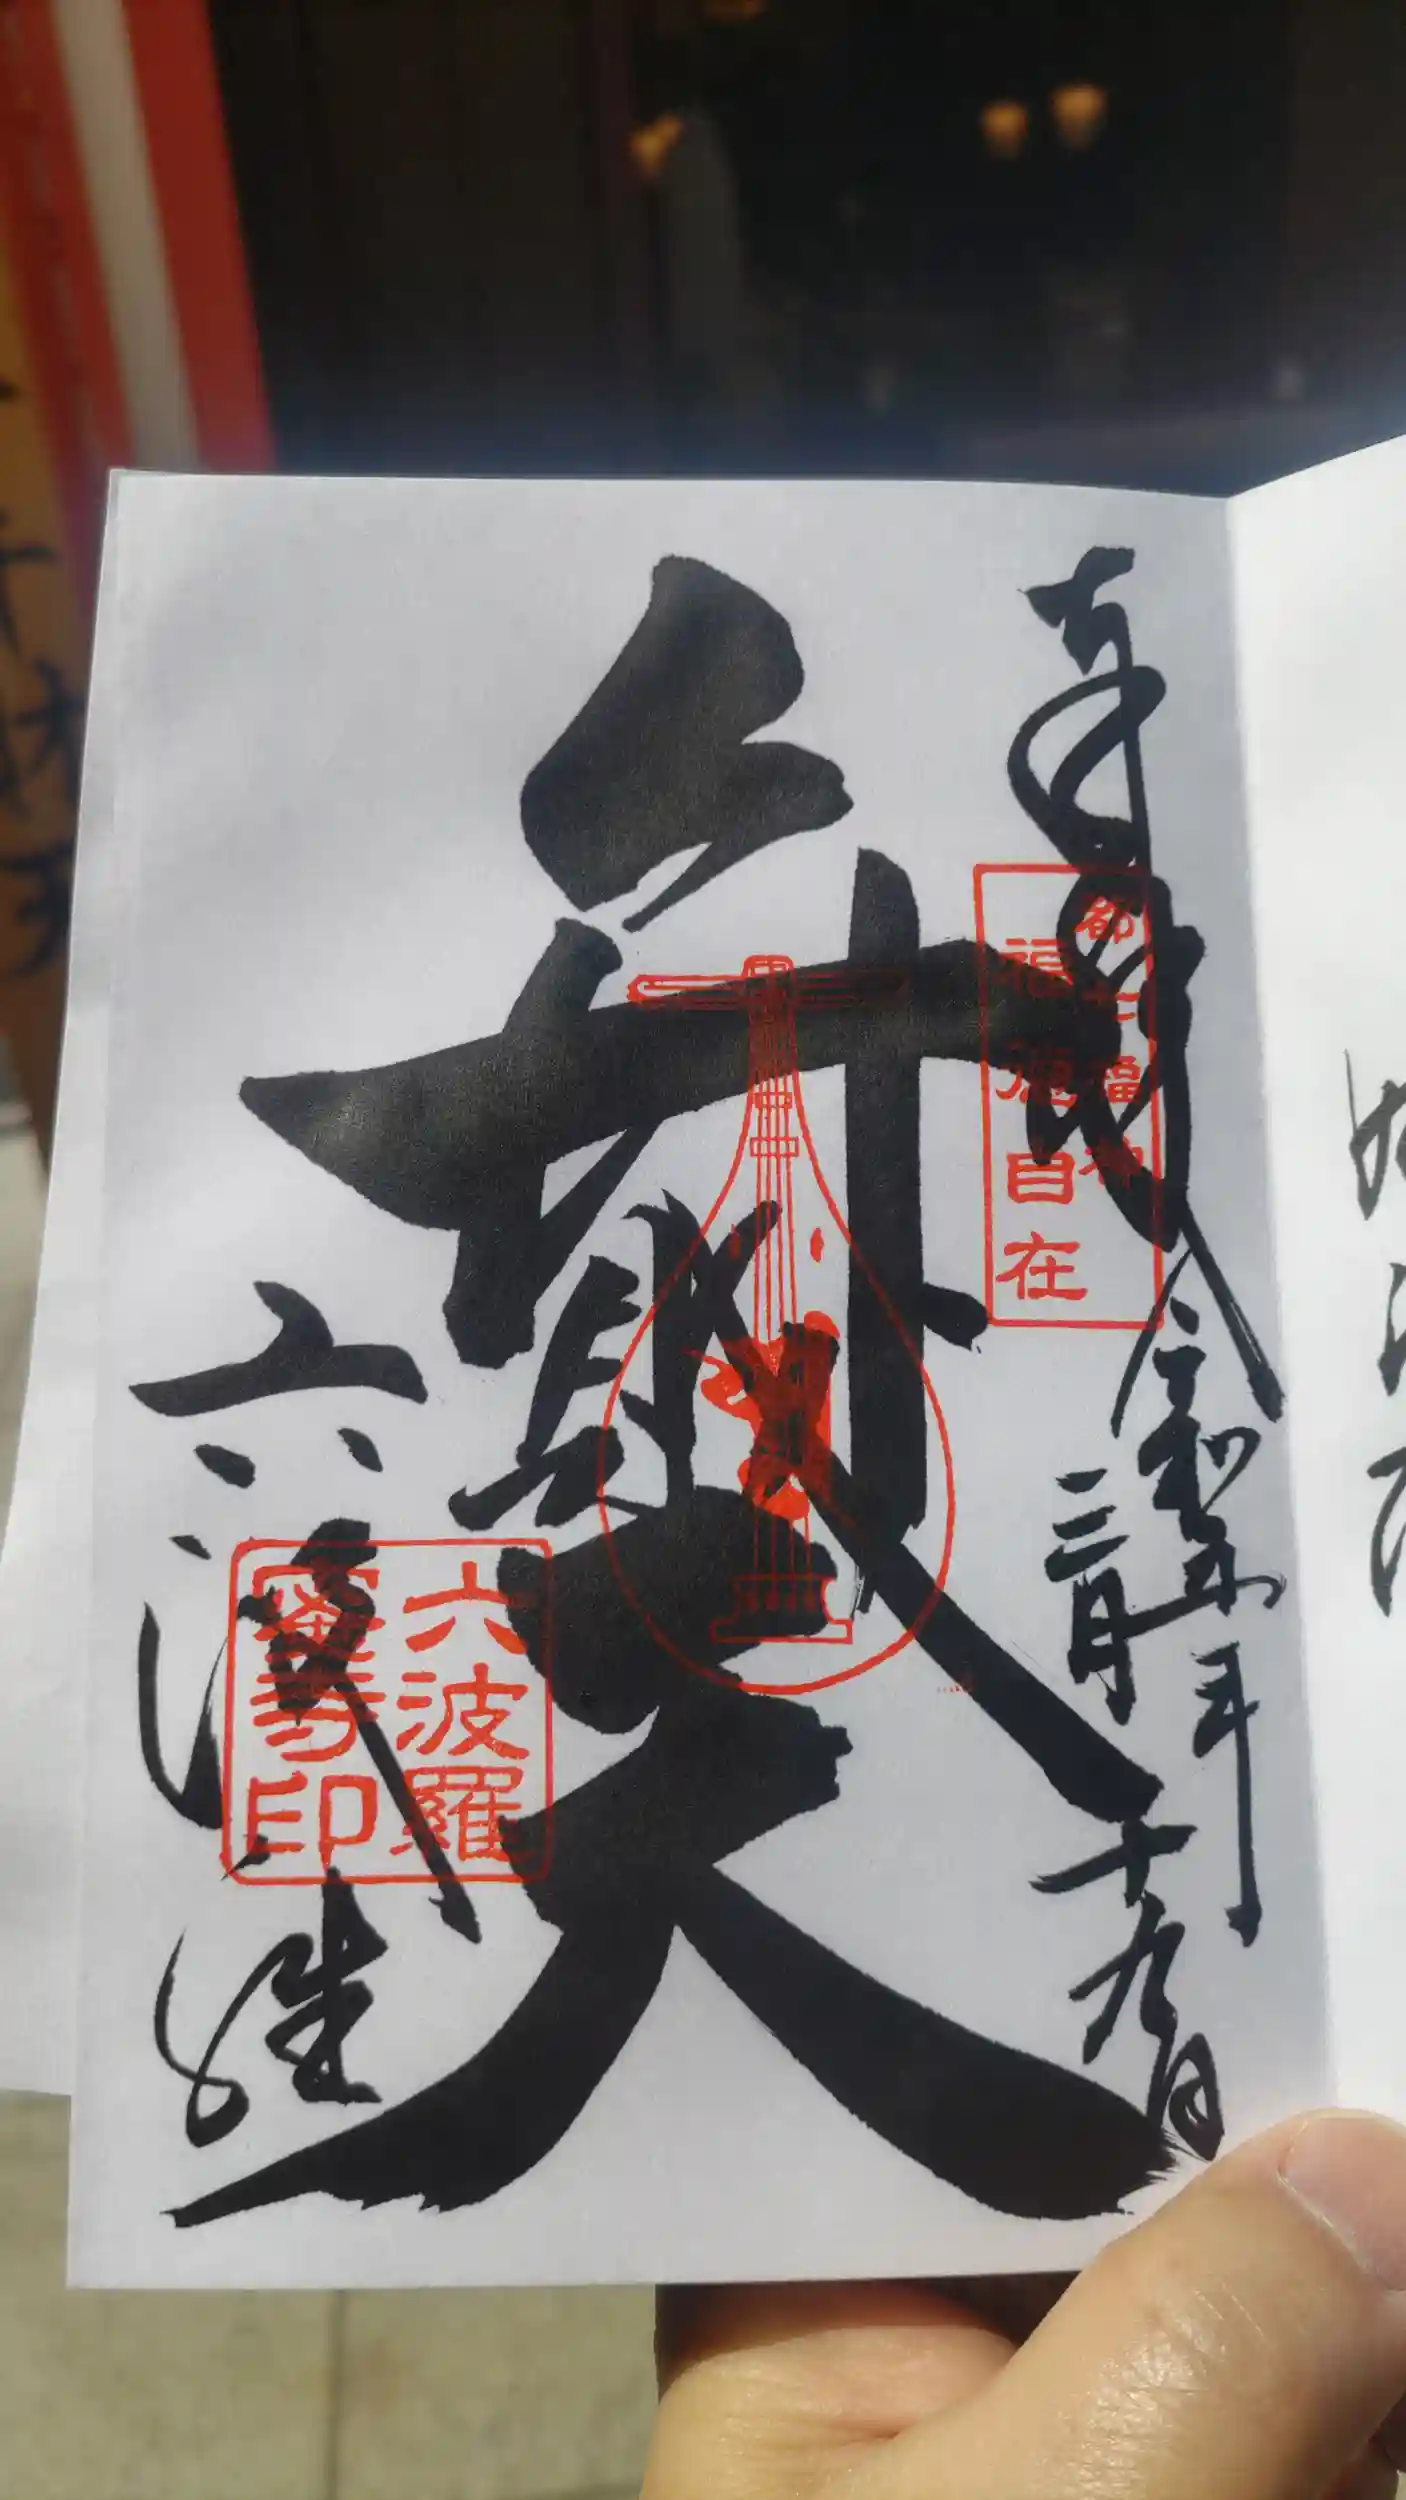 奉拝
都七福神
福徳自在
令和年
三月十九日
弁財天
六波羅
六波羅
蜜寺印